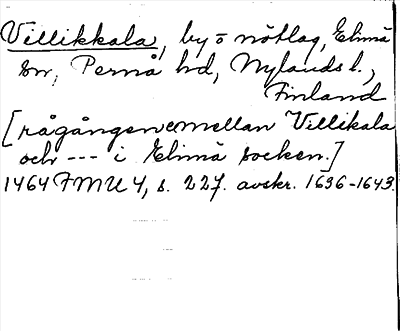 Villikkala, by o nötlag, Elimä
sn, Pernå hd, Nylands l.,
Finland
[rågången emellan Villikala
och --- i Elimä socken.]
1464 FMU 4, s. 227. avskr. 1636-1643.